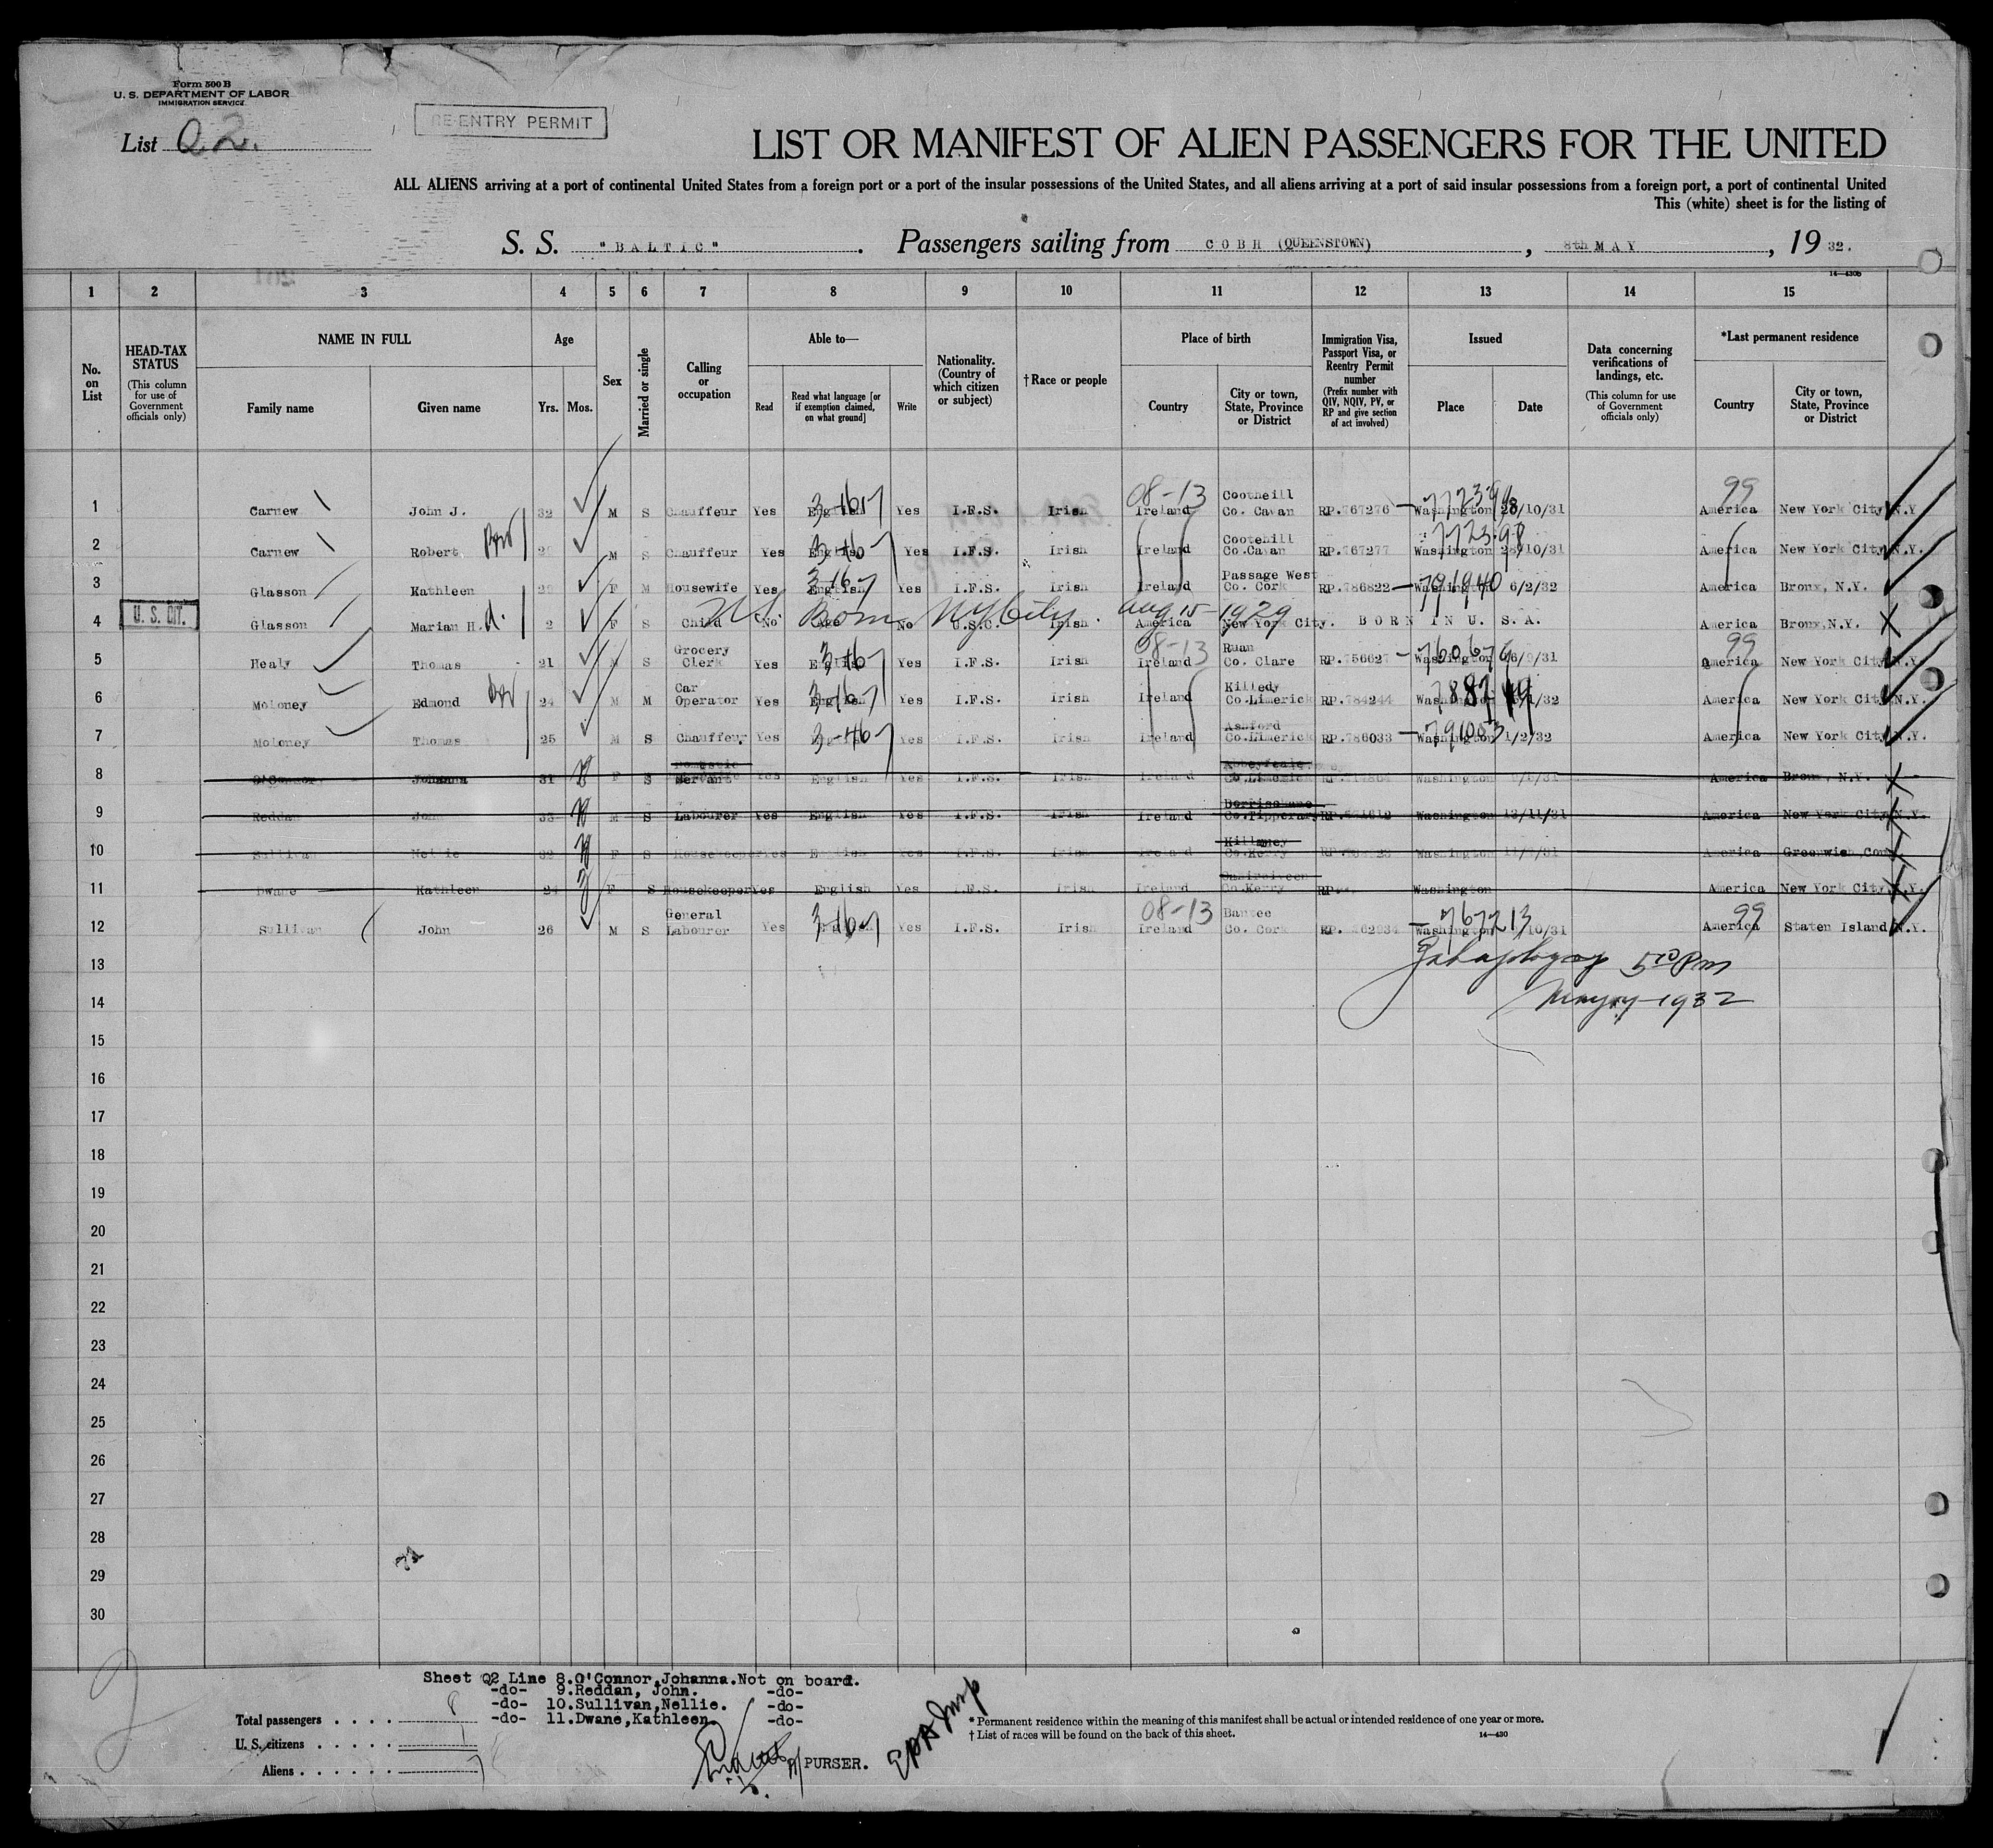 Form 500 B
U. S. DEPARTMENT OF LABOR
IMMIGRATION SERVICE
List Q2.
RE-ENTRY PERMIT
LIST OR MANIFEST OF ALIEN PASSENGERS FOR THE UNITED
ALL ALIENS arriving at a port of continental United States from a foreign port or a port of the insular possessions of the United States, and all aliens arriving at a port of said insular possessions from a foreign port, a port of continental United
This (white) sheet is for the listing of
S. S. "BALTIC" . Passengers sailing from COBH (QUEENSTOWN) , 8th MAY , 19 32.
14—430B
1 2 3 4 5 6 7 8 9 10 11 12 13 14 15
No. on List
HEAD-TAX STATUS
(This column for use of Government officials only)
NAME IN FULL
Family name Given name
Age
Yrs. Mos.
Sex
Married or single
Calling or occupation
Able to—
Read Read what language [or if exemption claimed, on what ground] Write
Nationality. (Country of which citizen or subject)
†Race or people
Place of birth
Country City or town, State, Province or District
Immigration Visa, Passport Visa, or Reentry Permit number
(Prefix number with QIV, NQIV, PV, or RP and give section of act involved)
Issued
Place Date
Data concerning verifications of landings, etc.
(This column for use of Government officials only)
*Last permanent residence
Country City or town, State, Province or District
08-13 99
1 Carnew John J. 32 M S Chauffeur Yes English Yes I.F.S. Irish Ireland Cootheill Co. Cavan RP.767276 Washington 28/10/31 America New York City N.Y
2 Carnew Robert M S Chauffeur Yes English Yes I.F.S. Irish Ireland Cootehill Co.Cavan RP.767277 Washington 28/10/31 America New York City N.Y.
3 Glasson Kathleen F M Housewife Yes English Yes I.F.S. Irish Ireland Passage West Co. Cork RP.786822 791940 Washington 6/2/32 America Bronx, N.Y.
U. S. CIT.
U.S. Born NYCity. Aug 15-1929
4 Glasson Marian H. 2 F S Child No Age No U.S.C. Irish America New York City. BORN IN U. S. A. America Bronx,N.Y.
08-13 99
5 Healy Thomas 21 M S Grocery Clerk Yes English Yes I.F.S. Irish Ireland Ruan Co. Clare RP.756627 760676 Washington America New York City N.Y.
6 Moloney Edmond 24 M M Car Operator Yes English Yes I.F.S. Irish Ireland Killedy Co.Limerick RP.784244 Washington America New York City N.Y.
7 Moloney Thomas 25 M S Chauffeur Yes English Yes I.F.S. Irish Ireland Ashford Co.Limerick RP.786033 791053 Washington 1/2/32 America New York City N.Y.
8 O'Connor Johanna 31 F S Domestic Servant Yes English Yes I.F.S. Irish Ireland Abbeyfeale Co.Limerick Washington America Bronx, N.Y.
9 Reddan John 33 M S Labourer Yes English Yes I.F.S. Irish Ireland Borrisokane Co.Tipperary Washington 13/11/31 America New York City N.Y.
10 Sullivan Nellie F S Housekeeper Yes English Yes I.F.S. Irish Ireland Killarney Co.Kerry Washington America Greenwich,Con
11 Dwane Kathleen 24 F S Housekeeper Yes English Yes I.F.S. Irish Ireland Co.Kerry RP. Washington America New York City N.Y.
08-13 99
12 Sullivan John 26 M S General Labourer Yes English Yes I.F.S. Irish Ireland Banteer Co. Cork RP. 767213 Washington 10/31 America Staten Island N.Y.
13
5 10 Pm
14
May 17-1932
15
16
17
18
19
20
21
22
23
24
25
26
27
28
29
30
Sheet Q2 Line 8.O'Connor,Johanna.Not on board.
-do- 9.Reddan, John. -do-
-do- 10.Sullivan,Nellie. -do-
-do- 11.Dwane,Kathleen -do-
Total passengers . . . . 8
U. S. citizens . . . . . 1
Aliens . . . . . . 7
PURSER.
* Permanent residence within the meaning of this manifest shall be actual or intended residence of one year or more.
† List of races will be found on the back of this sheet.
14—430